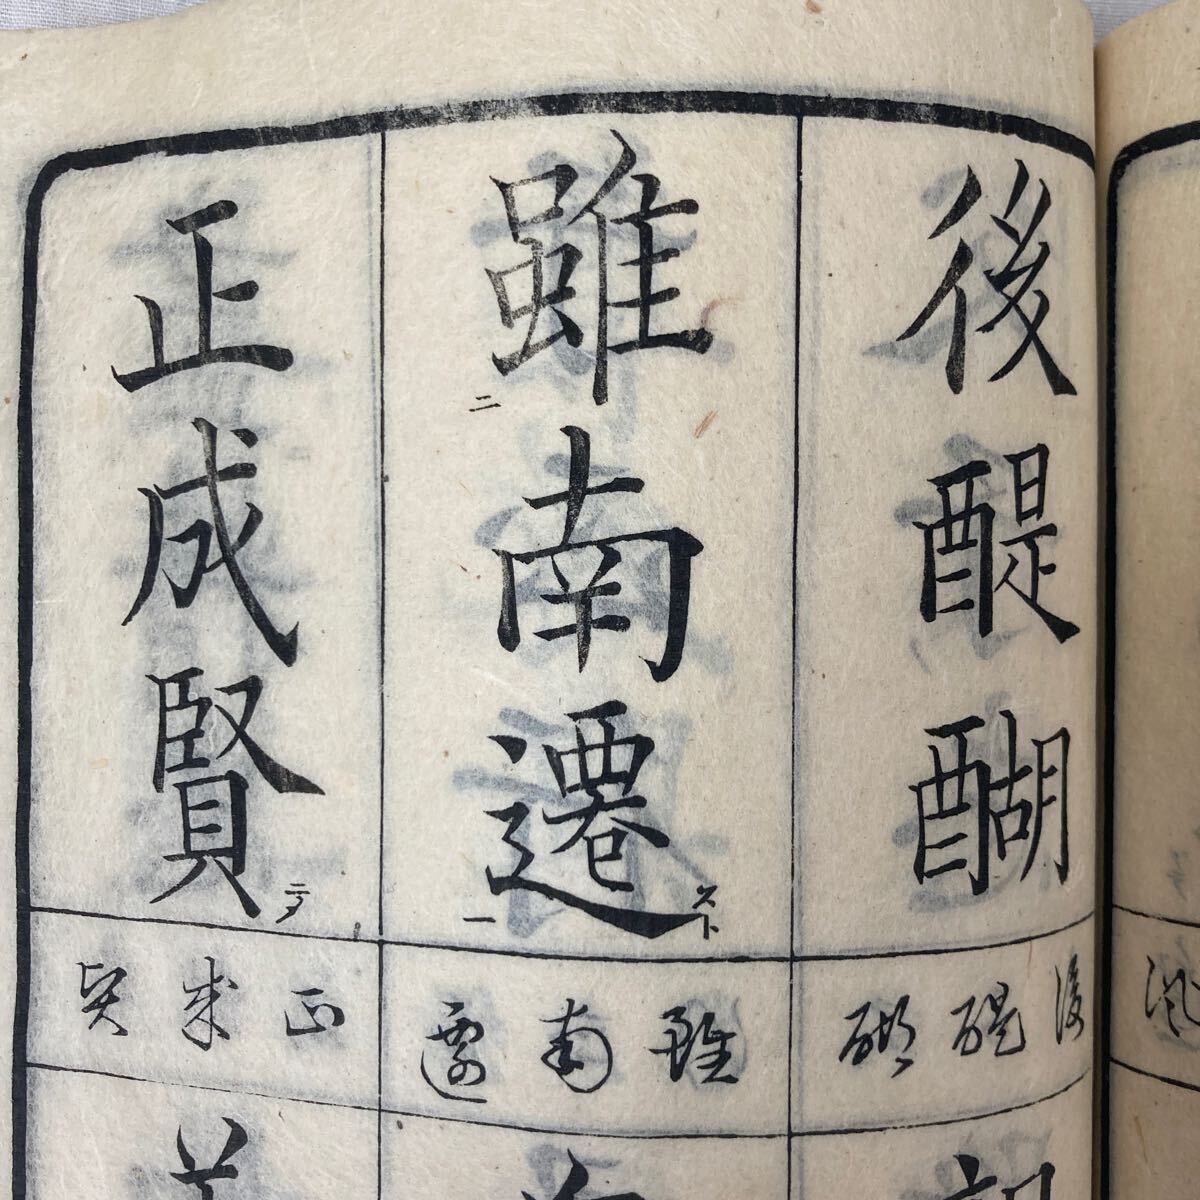 後醍醐
雖二南遷一スト
正成賢ニタ
後醍醐
雖南遷
正成賢